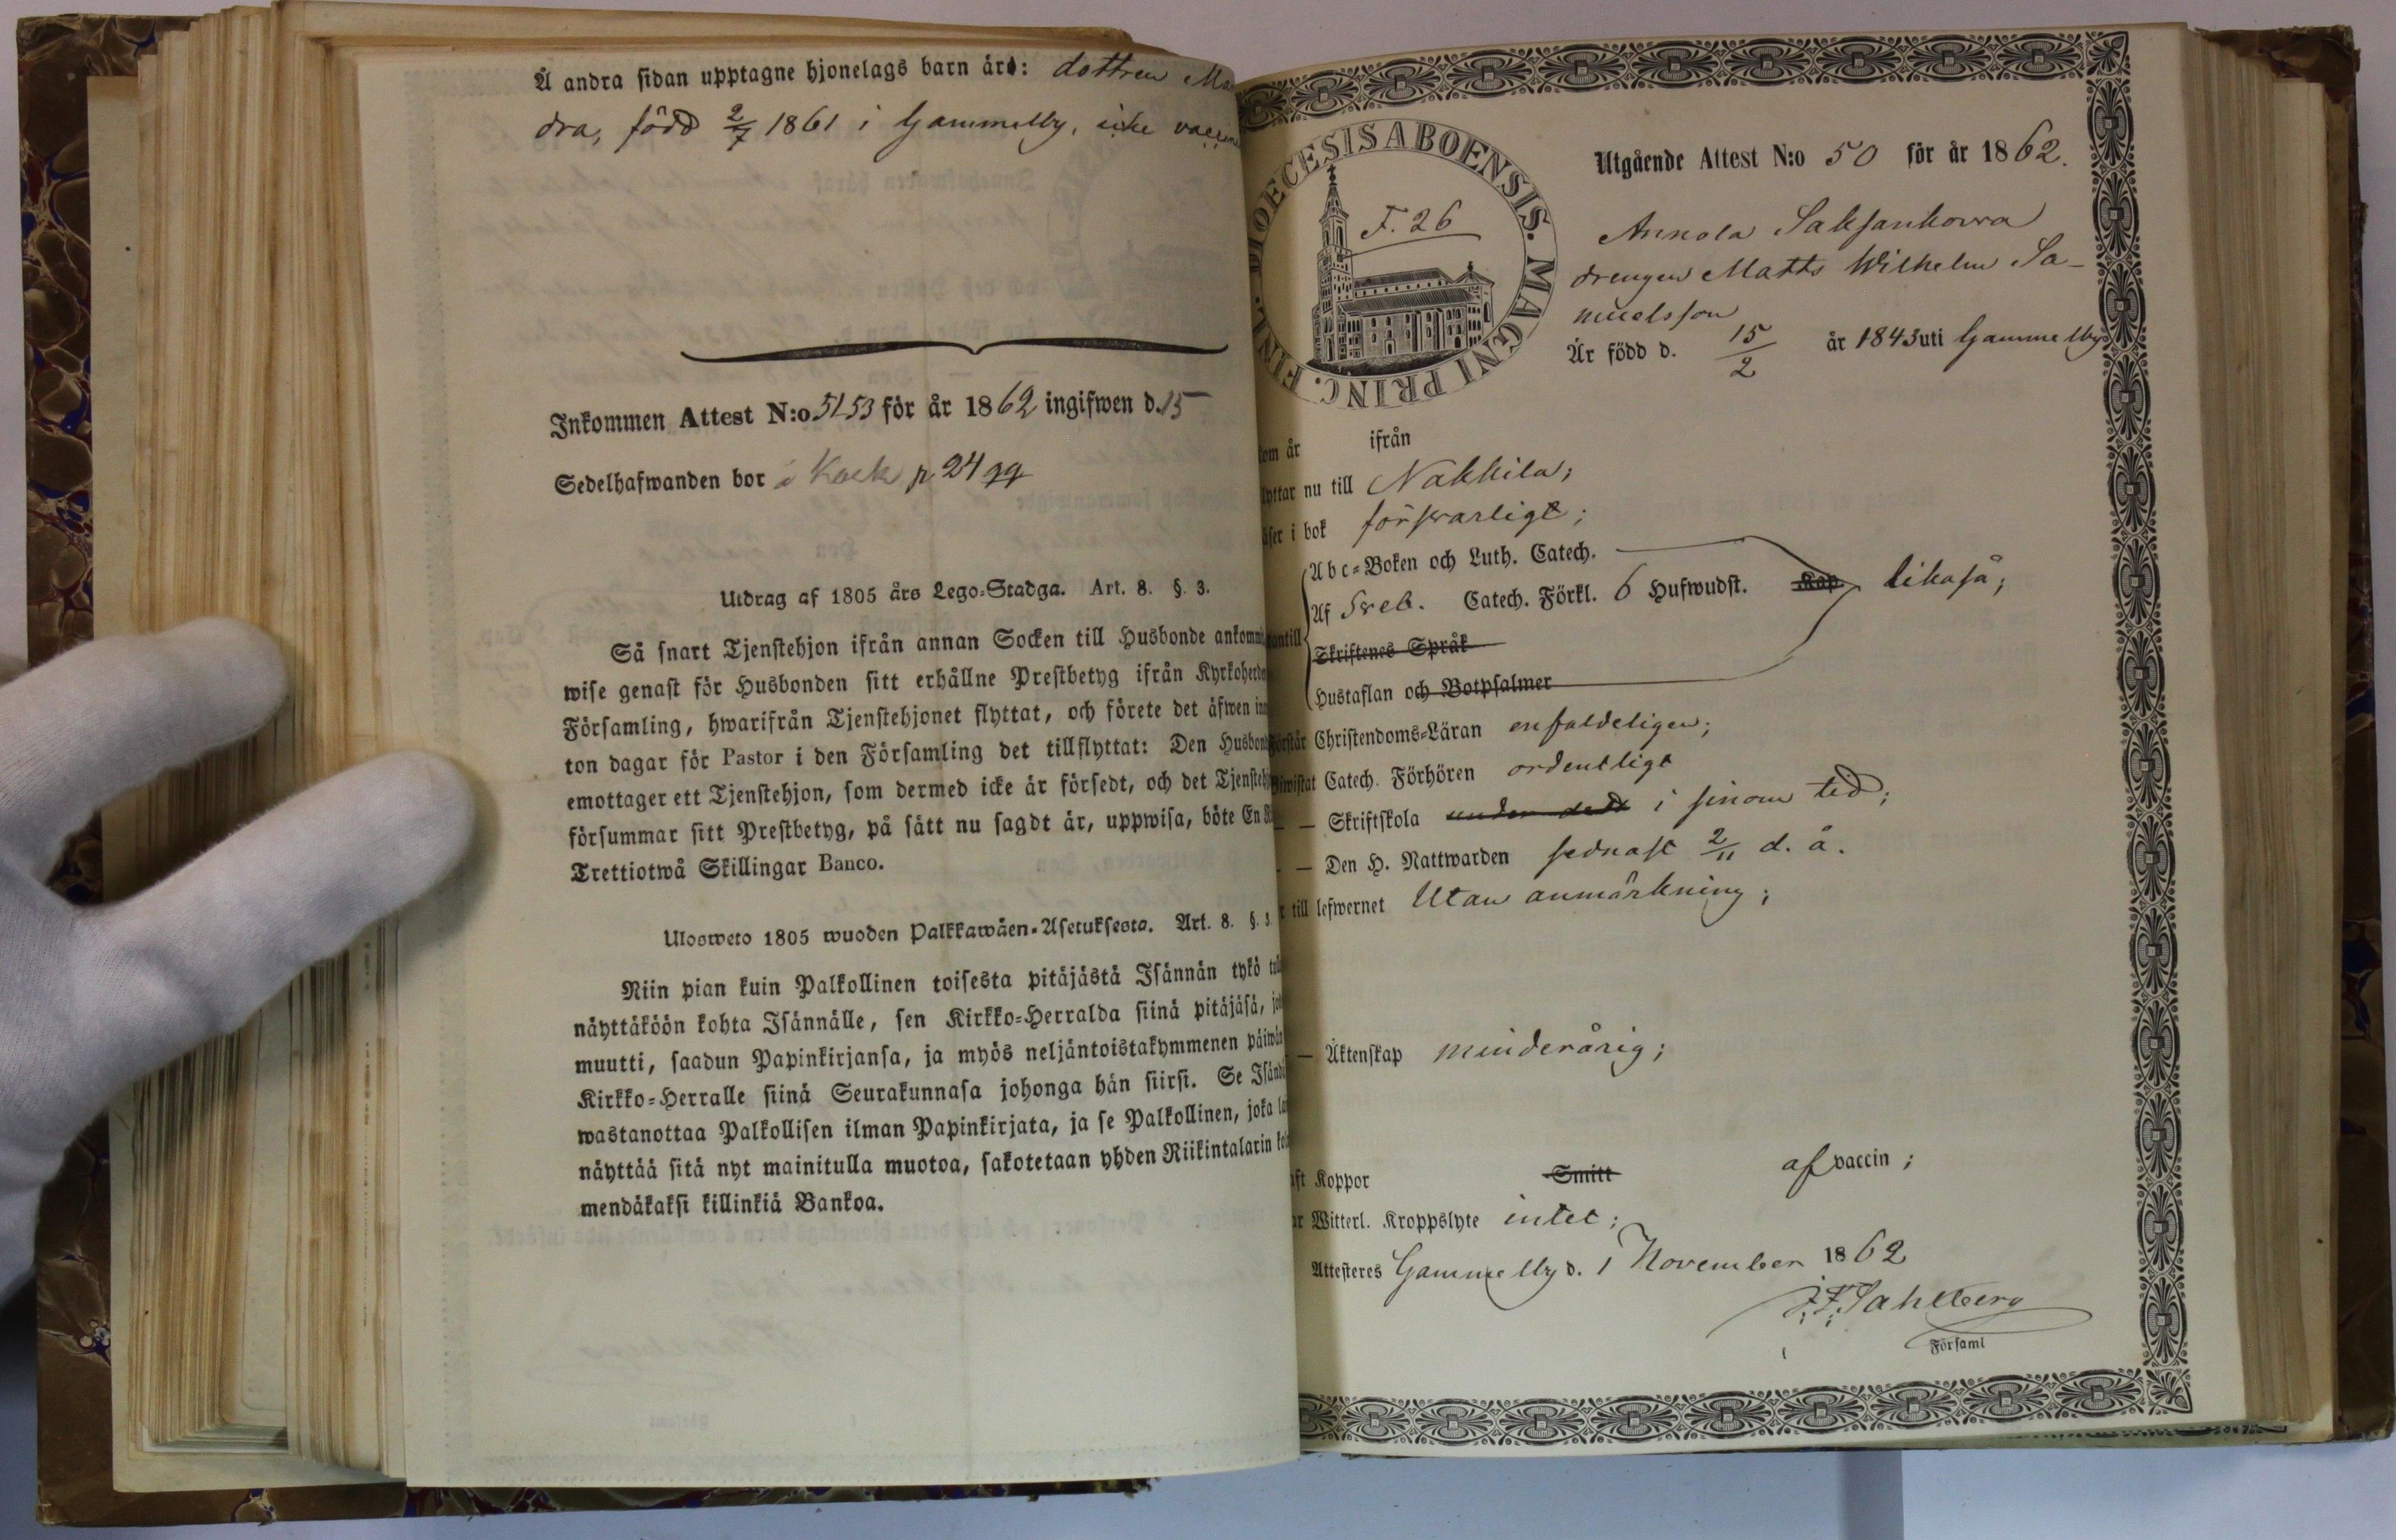 Å andra sidan upptagne hjonelags barn är: dottren Ma
dra, född 2/7 1861 i Gammelby, icke vaccine
Inkommen Attest N:o 51.53 för år 1862 ingifwen d. 15
Sedelhafwanden bor i Kock p 24
Utdrag af 1805 års Lego-Stadga. Art. 8. §. 3.
Så snart Tjenstehjon ifrån annan Socken till Husbonde ankommi
wise genast för Husbonden sitt erhållne Prestbetyg ifrån Kyrkoherde
Församling, hwarifrån Tjenstehjonet flyttat, och förete det äfwen in
ton dagar för Pastor i den Församling det tillflyttat: Den Husbond
emottager ett Tjenstehjon, som dermed icke är försedt, och det Tjensteh
försummar sitt Prestbetyg, på sätt nu sagdt är, uppwisa, böte En
Trettiotwå Skillingar Banco.
Ulosweto 1805 wuoden Palkkawäen-Asetuksesta. Art. 8. §. 3.
Niin pian kuin Palkollinen toisesta pitäjästä Isännän tykö
näyttäköön kohta Isännälle, sen Kirkko-Herralda siinä pitäjäsä,
muutti, saadun Papinkirjansa, ja myös neljäntoistakymmenen päiwän
Kirkko-Herralle siinä Seurakunnasa johonga hän siirsi. Se Isänd
wastanottaa Palkollisen ilman Papinkirjata, ja se Palkollinen, joka
näyttää sitä nyt mainitulla muotoa, sakotetaan yhden Riikintalarin
mendäkaksi killinkiä Bankoa.
DIOECESIS ABOENSIS. MAGNI PRINC. FINL.
F. 26
Utgående Attest N:o 50 för år 1862.
Annola Saksankowa
drengen Matts Wilhelm Sa-
muelsson
Är född d. 15/2 år 1843 uti Gammelby
kom år ifrån
lyttar nu till Nakkila;
äser i bok försvarligt;
Abc-Boken och Luth. Catech.
antill Af Sveb. Catech. Förkl. 6 Hufwudst. Kap. likaså;
Skriftenes Språk
Hustaflan och Botpsalmer
Förstår Christendoms-Läran enfaldeligen;
Biwistat Catech. Förhören ordentligt
— Skriftskola i sinom tid;
— Den H. Nattwarden sednast 2/11 d. å.
r till lefwernet Utan anmärkning;
— Äktenskap minderårig;
aft Koppor Smitt af vaccin;
ar Witterl. Kroppslyte intet;
Attesteres Gammelby d. 1 November 1862
F. Sahlberg
Församl